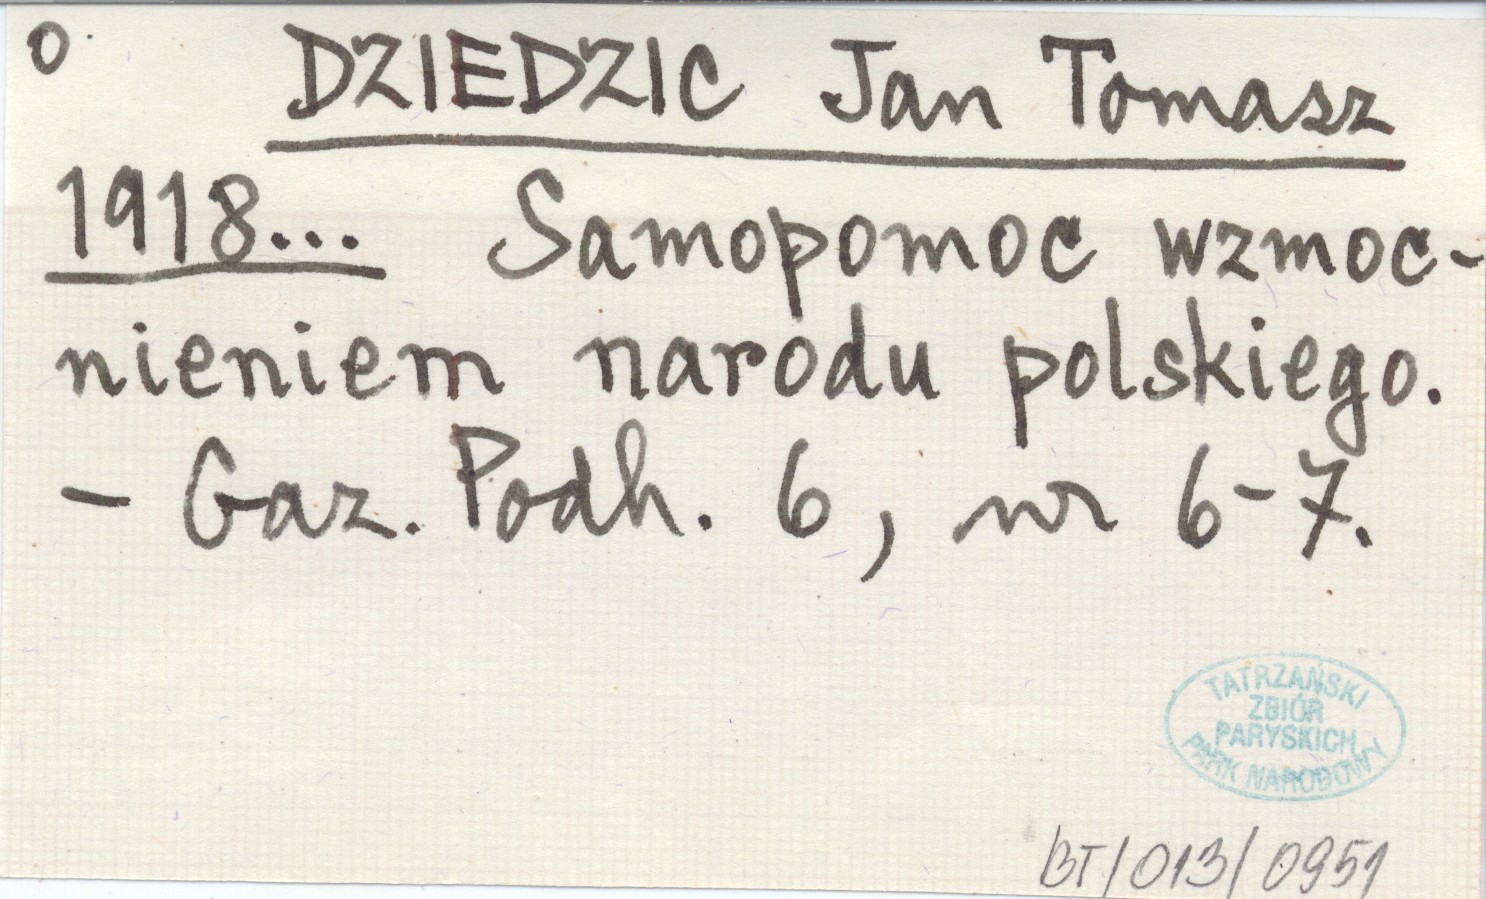 o
DZIEDZIC Jan Tomasz
1918... Samopomoc wzmoc-
nieniem narodu polskiego.
- Gaz. Podh. 6, nr 6-7.
TATRZAŃSKI
ZBIÓR
PARYSKICH
PARK NARODOWY
BT/013/0951